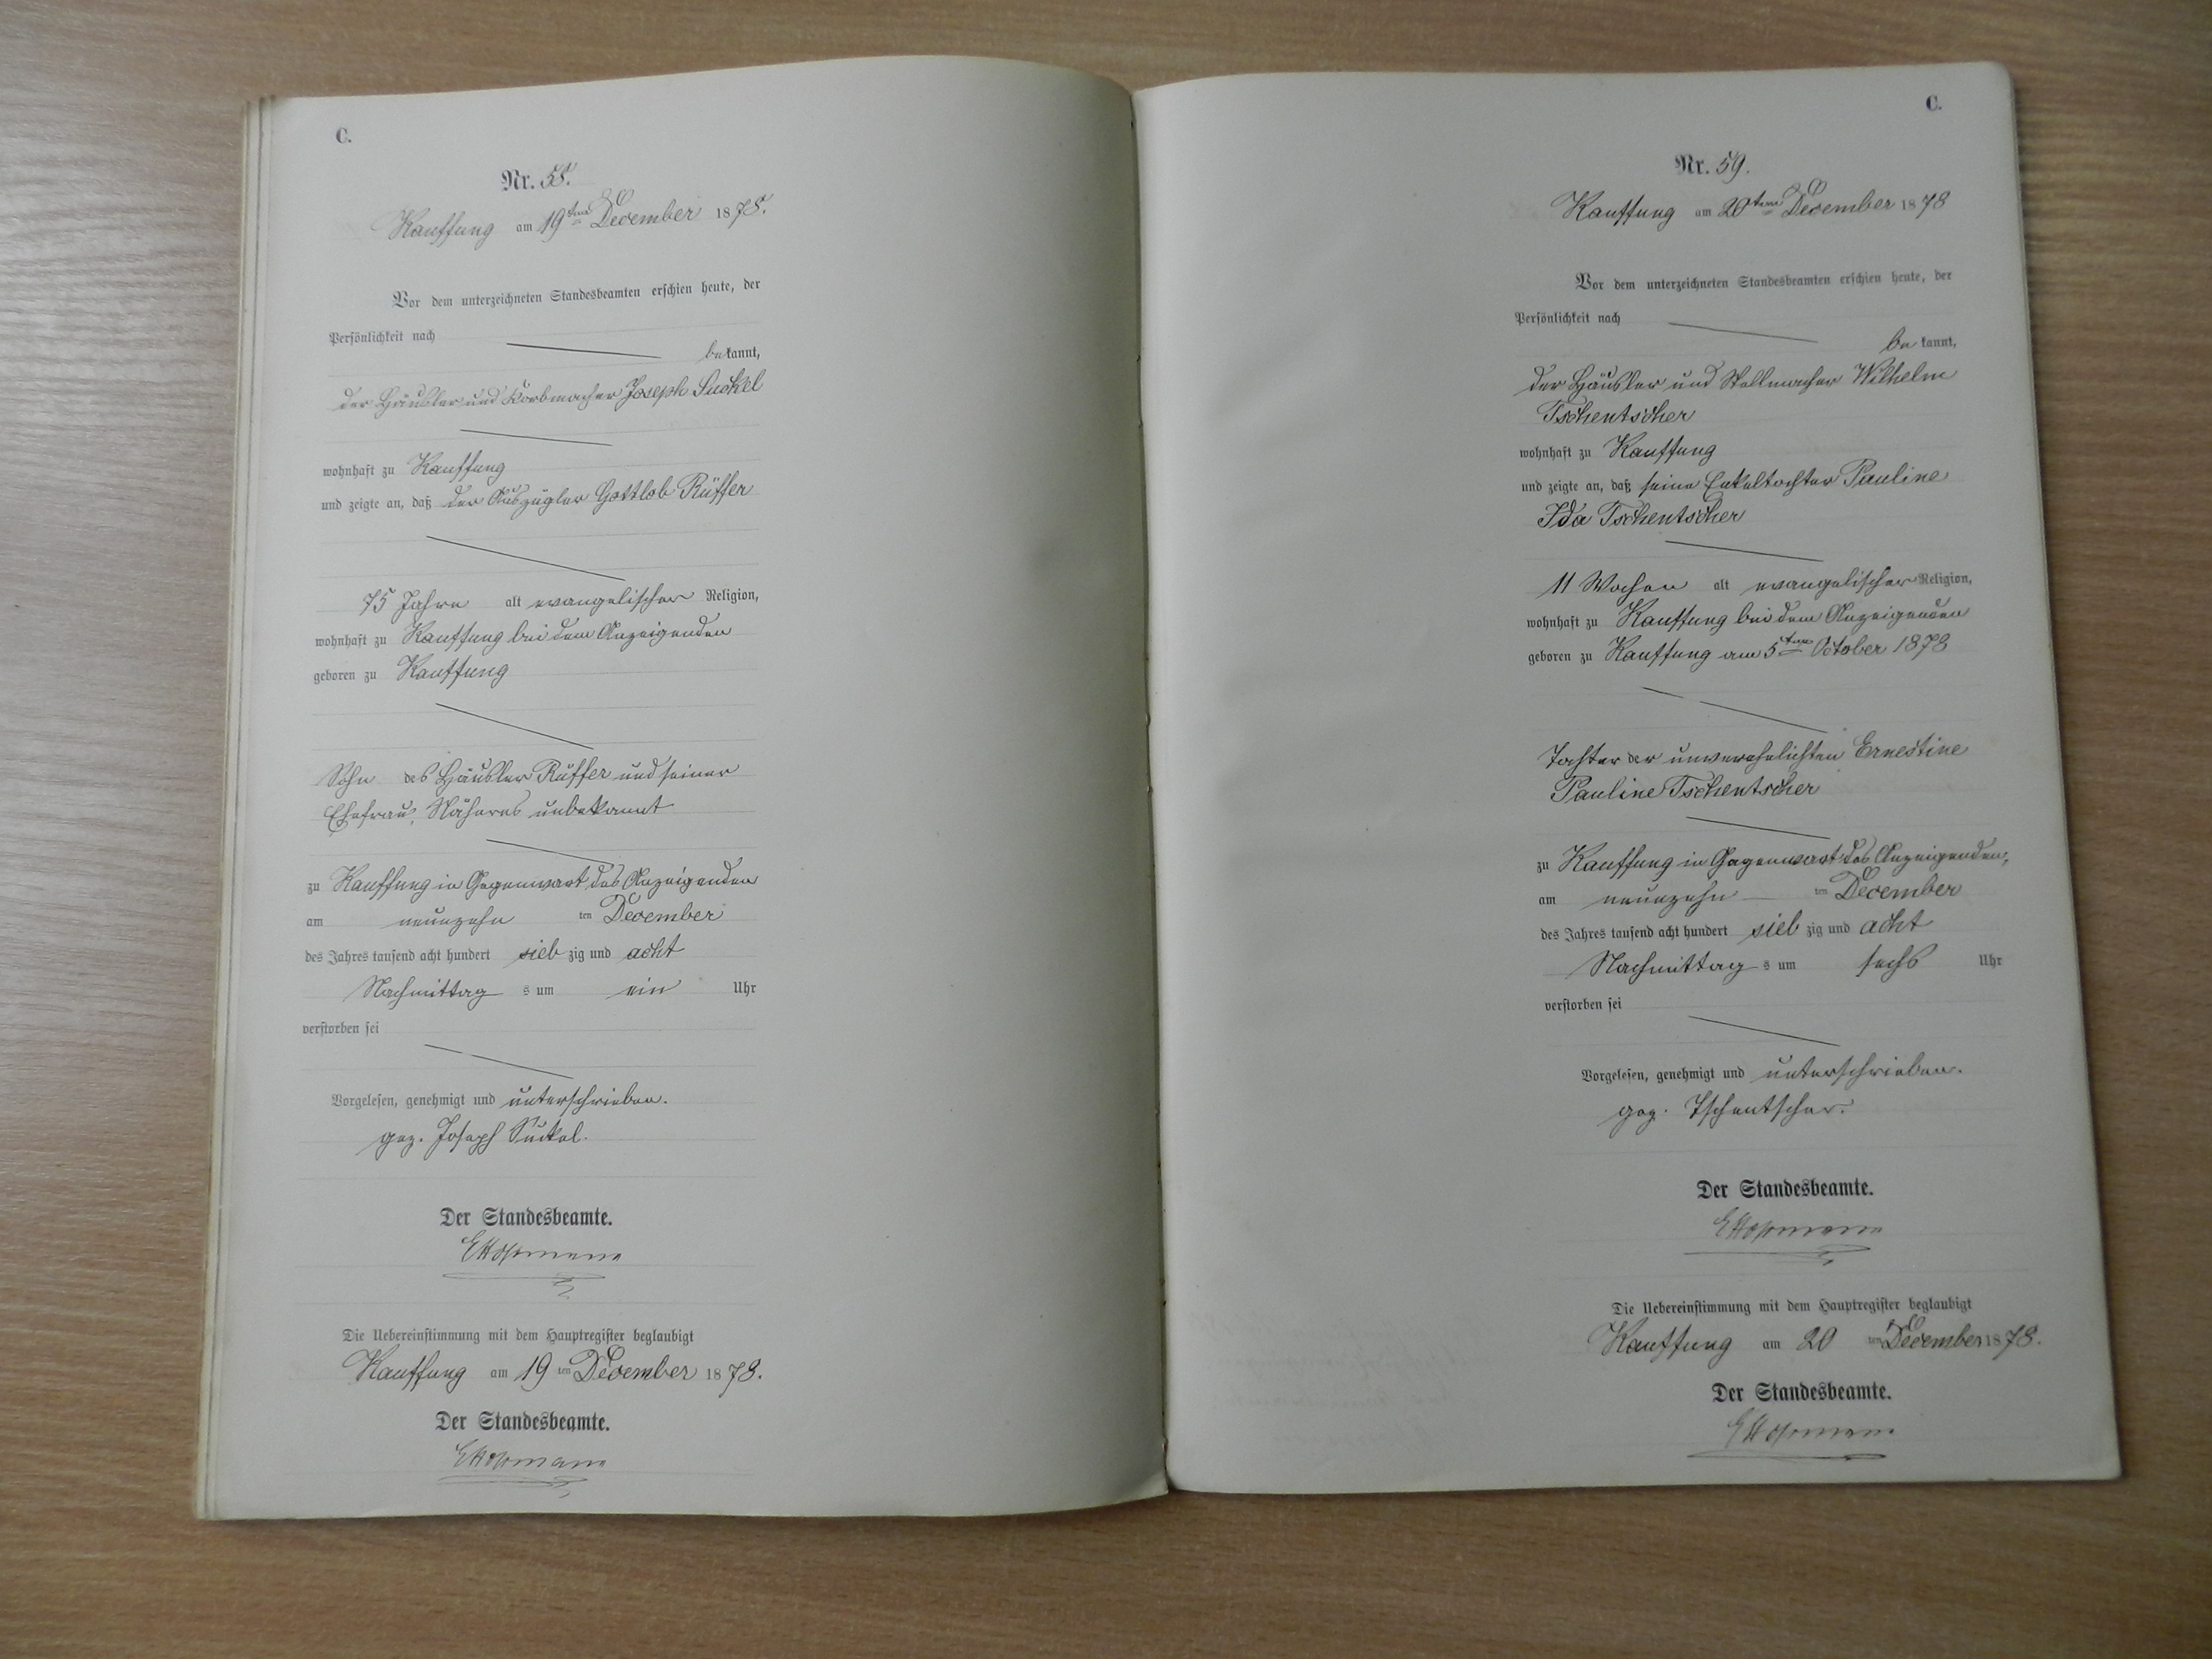 C.
Nr. 58.
Kauffung am 19ten December 1878.
Vor dem unterzeichneten Standesbeamten erschien heute, der
Persönlichkeit nach
bekannt,
der Häusler und Korbmacher Joseph Suckel
wohnhaft zu Kauffung
und zeigte an, daß der Auszügler Gottlob Rüffer
75 Jahre alt evangelischer Religion,
wohnhaft zu Kauffung bei dem Anzeigenden
geboren zu Kauffung
Sohn des Häusler Rüffer und seiner
Ehefrau, Näheres unbekannt
zu Kauffung in Gegenwart des Anzeigenden
am neunzehn ten December
des Jahres tausend acht hundert siebzig und acht
Nachmittags um ein Uhr
verstorben sei
Vorgelesen, genehmigt und unterschrieben.
gez. Joseph Suckel.
Der Standesbeamte.
Die Uebereinstimmung mit dem Hauptregister beglaubigt
Kauffung am 19 ten December 1878.
Der Standesbeamte.
C.
Nr. 59.
Kauffung am 20ten December 1878
Vor dem unterzeichneten Standesbeamten erschien heute, der
Persönlichkeit nach
bekannt,
der Häusler und Stellmacher Wilhelm
Tschentscher
wohnhaft zu Kauffung
und zeigte an, daß seine Enkeltochter Pauline
Ida Tschentscher
11 Wochen alt evangelischer Religion,
wohnhaft zu Kauffung bei dem Anzeigenden
geboren zu Kauffung am 5ten October 1878
Tochter der unverehelichten Ernestine
Pauline Tschentscher
zu Kauffung in Gegenwart des Anzeigenden,
am neunzehn ten December
des Jahres tausend acht hundert siebzig und acht
Nachmittags um sechs Uhr
verstorben sei
Vorgelesen, genehmigt und unterschrieben.
gez. Tschentscher.
Der Standesbeamte.
Die Uebereinstimmung mit dem Hauptregister beglaubigt
Kauffung am 20 ten December 1878.
Der Standesbeamte.